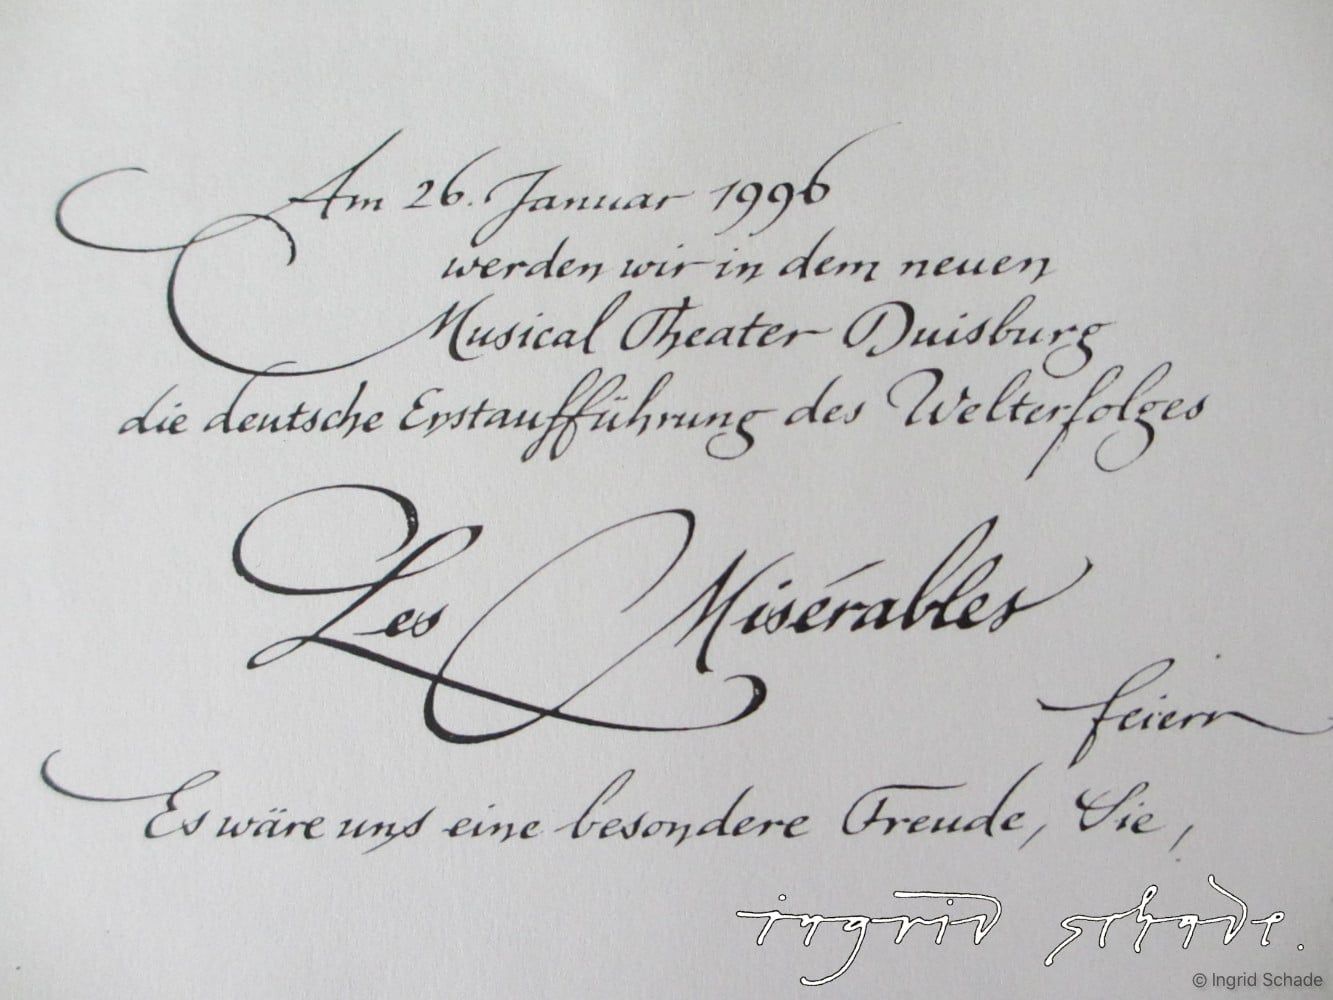 Am 26. Januar 1996
werden wir in dem neuen
Musical Theater Duisburg
die deutsche Erstaufführung des Welterfolges
Les Misérables
feiern
Es wäre uns eine besondere Freude, Sie,
ingrid schade.
© Ingrid Schade